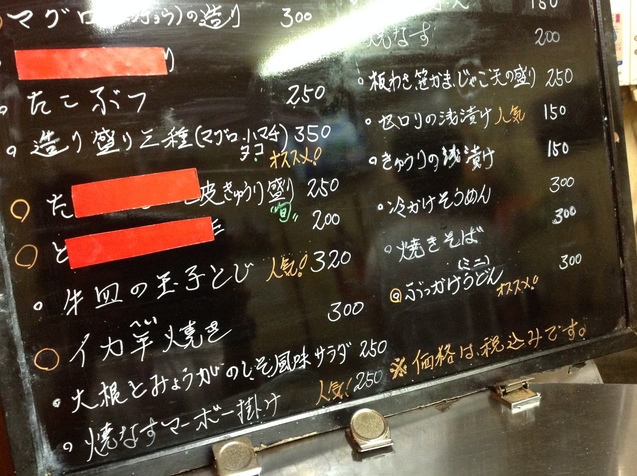 マグロ の造り 300
り
たこぶつ 250
造り盛り三種(マグロ・ハマチ タコ) 350 オススメ!
た 皮きゅうり盛り 250
と "旬" 200
牛皿の玉子とじ 人気! 320
イカ竿焼き 300
大根とみょうがのしそ風味サラダ 250
焼なすマーボー掛け 人気! 250
150
焼なす 200
板わさ、笹かま、じゃこ天の盛り 250
セロリの浅漬け 人気 150
きゅうりの浅漬け 150
冷かけそうめん 300
焼きそば 300
ぶっかけ(ミニ)うどん オススメ! 300
※価格は、税込みです。